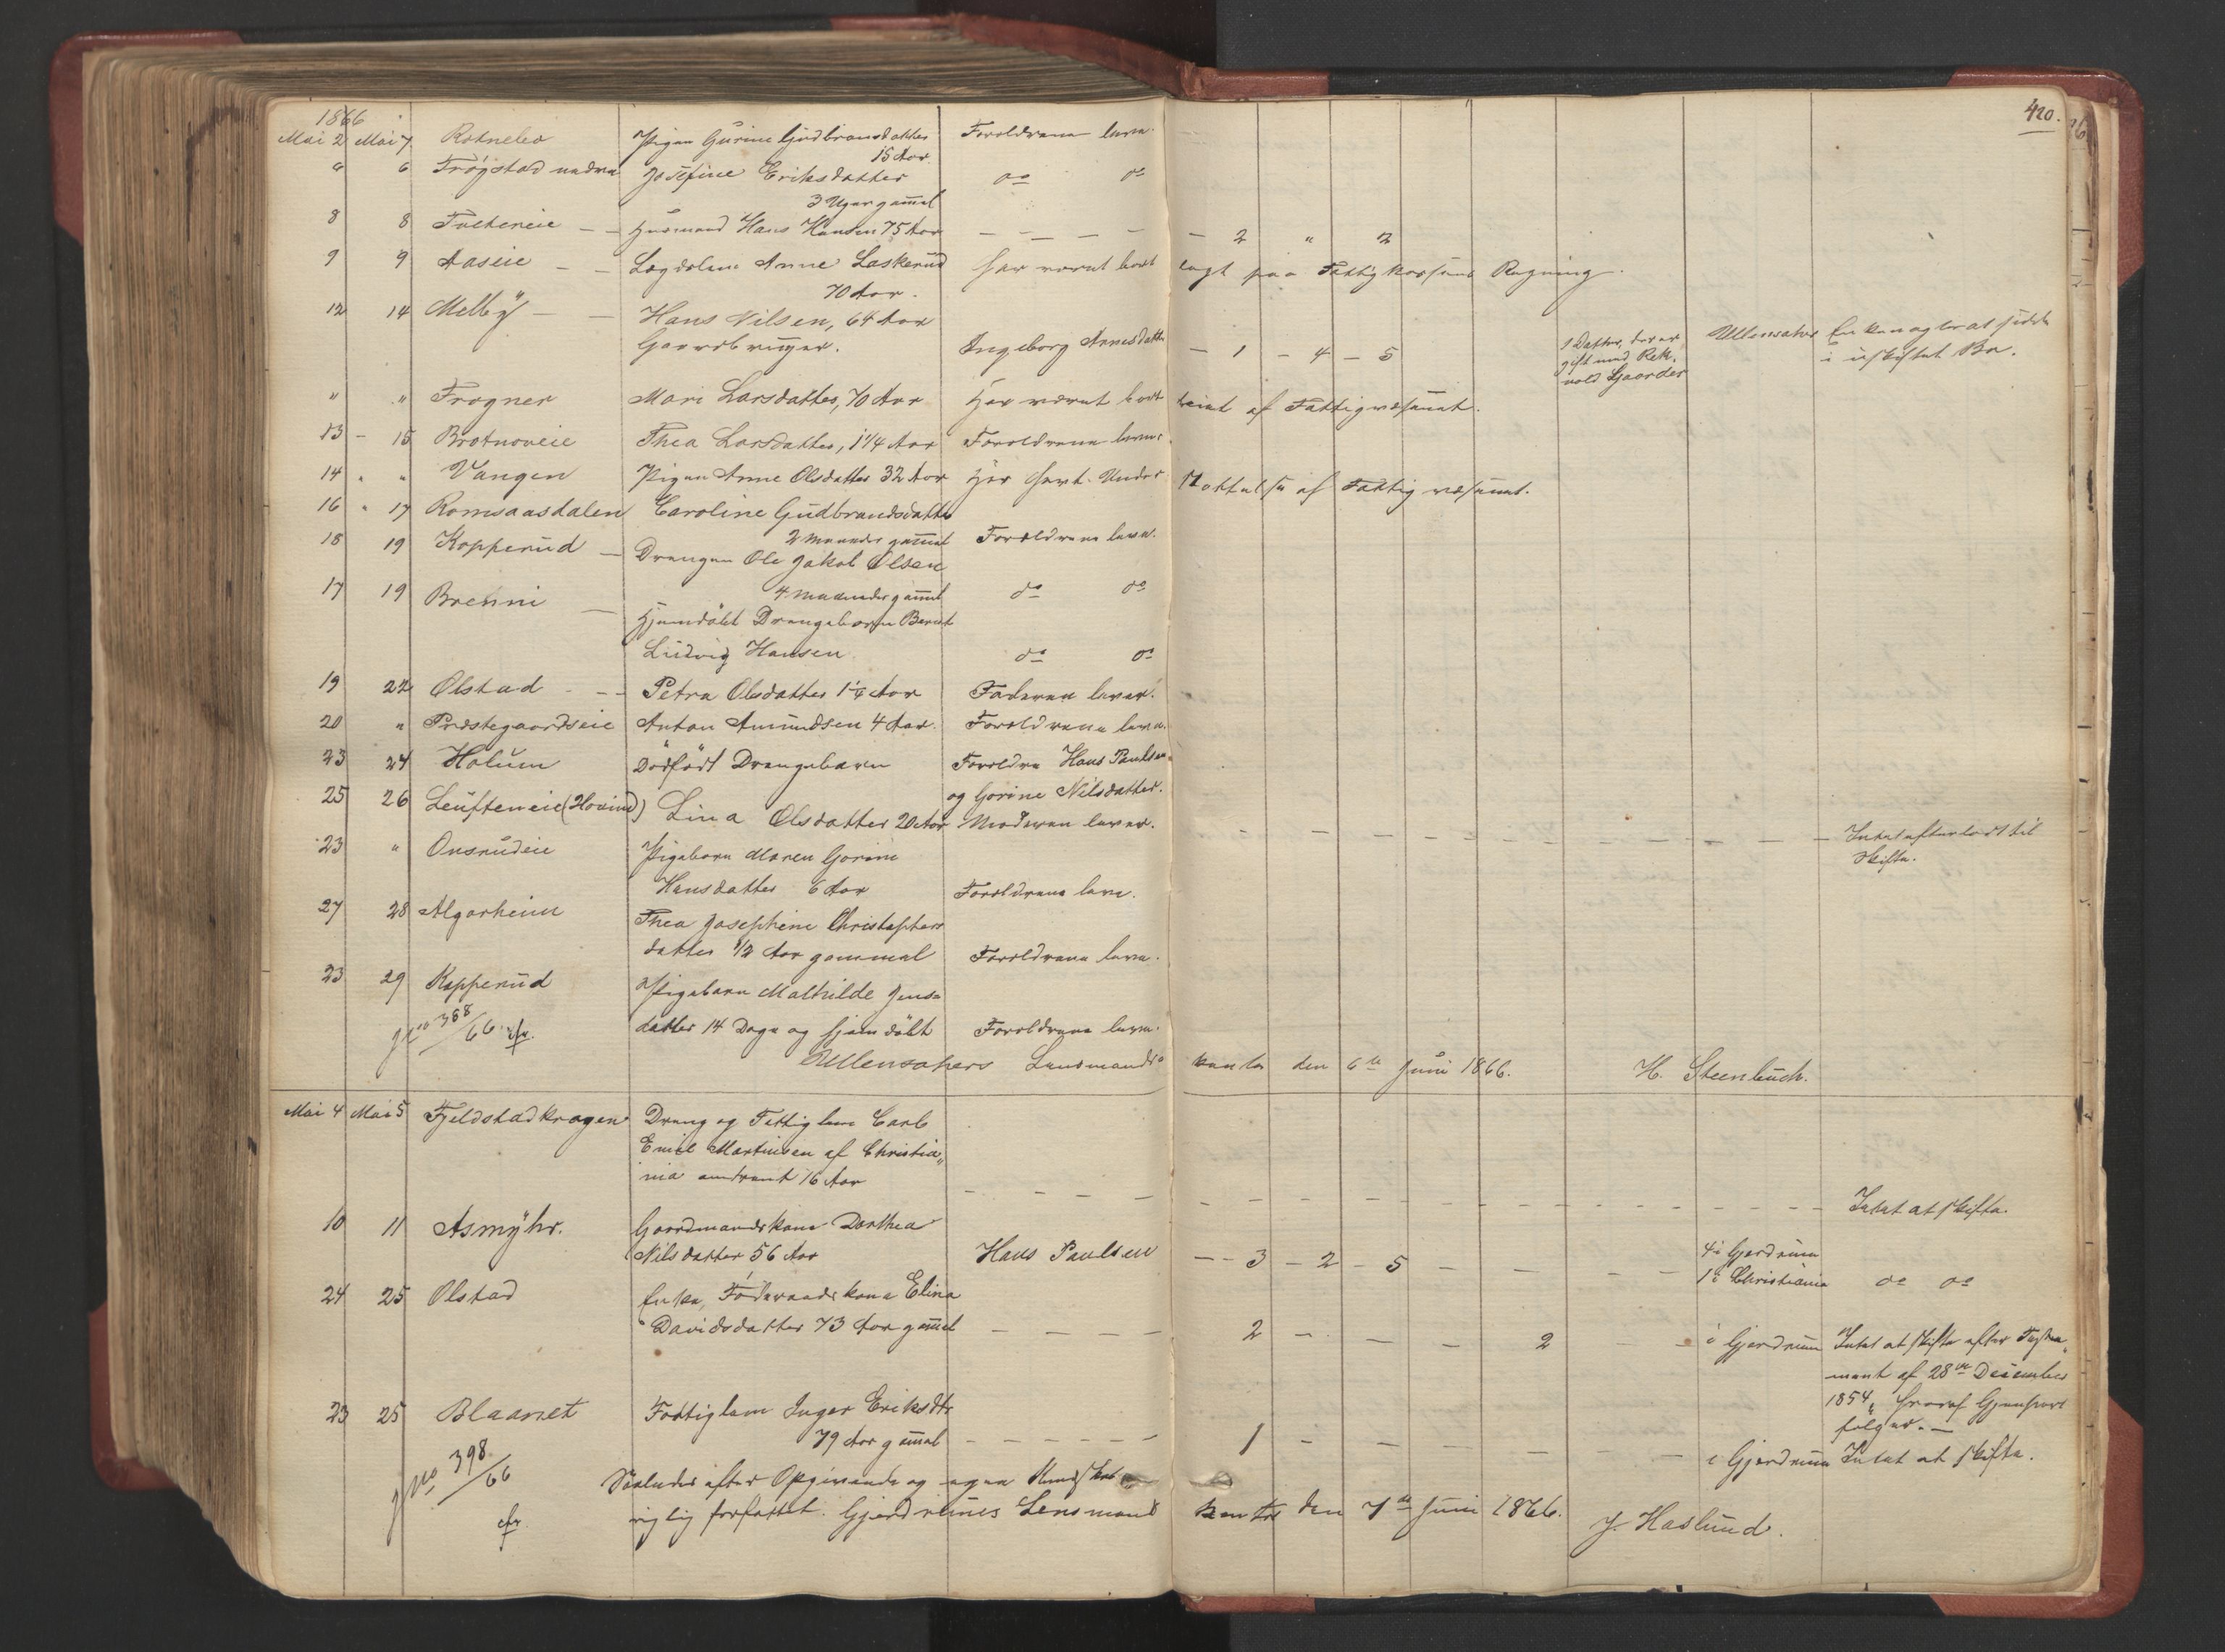 420.
1866
Mai 2 Mai 7 Rotnebo Pigen Gurine Gudbrandsdatter Foreldrene leve.
15 Aar.
" 6 Frøgstad nedre Josefine Eriksdatter do do
3 Uger gam̄el
8 8 Husmand Hans Hansen 75 Aar — — — — — 2 " 2
9 9 Aaseie — — Lægdslem Anne Laskerud har været bort lagt paa Fattigkassens Regning.
70 Aar.
12 14 Melby — — Hans Nilsen, 64 Aar
Gaardbruger. Ingeborg Arnesdatter — 1 — 4 — 5 1 Datter, der er gift med Gaarder Ullensaker Enken agter at sidde
i uskiftet Bo.
" " Frogner Mari Larsdatter, 70 Aar Har været bort af Fattigvæsenet.
13 — 15 Brotnoveie Thea Larsdatter, 1 1/4 Aar Foreldrene lever.
14 " " Vangen Pigen Anne Olsdatter 32 Aar Har havt Under støttelse af Fattigvæsenet.
16 " 17 Romsaasdalen Caroline Gudbrandsdatter
2 Maaneder gam̄el Foreldrene leve.
18 19 Kopperud — Drengen Ole Jakob Olsen
4 Maaneder gam̄el do do
17 19 Brenni — Hjemdøbt Drengebarn Bernt
Ludvig Hansen do do
19 22 Olstad — — Petra Olsdatter 1 1/4 Aar Faderen lever.
20 " Præstegaardseie Anton Amundsen 4 Aar. Foreldrene leve.
23 24 Holum Dødfødt Drengebarn Foreldre Hans Paulsen
og Gorine Nilsdatter.
25 26 (Hovind) Lina Olsdatter 20 Aar Moderen lever. — — — — — — — — — — Intet efterladt til
Skifte.
23 " Onsrudeie Pigebarn Maren Gorine
Hansdatter 6 Aar Foreldrene leve.
27 28 Algarheim Thea Josephine Christophers
datter 1/2 Aar gammel Foreldrene leve.
23 29 Kopperud Pigebarn Mathilde Jens=
datter 14 Dage og hjemdøbt Foreldrene leve.
J No 368/66 cfr.
Ullensakers Lensmands= kontor den 6te Juni 1866. H. Steenbuch.
Mai 4 Mai 5 Fjeldstadkragen Dreng og Fattiglem Carl
Emil Martinsen af Christia„
nia omtrent 16 Aar — — — — — — — — — — — — — Intet at skifte.
10 11 Asmyhr. Gaardmandskone Dorthea
Nilsdatter 56 Aar Hans Paulsen — — 3 — 2 — 5 — — — — 4 i Gjerdrum
1 i Christiania do do
24 25 Olstad Enke, Føderaadskone Elina
Davidsdatter 73 Aar gam̄el — — — — 2 — — — 2 — — i Gjerdrum Intet at skifte efter Testa„
ment af 28de December
1854, hvoraf Gjenpart
følger. —
23 25 Blaanet Fattiglem Inger Eriksdtr
79 Aar gam̄el — — — — — — 1 — — — — — — i Gjerdrum Intet at skifte.
J No 398/66
cfr
Saaledes efter Opgivende og egen Kundskab
rigtig forfattet. Gjerdrums Lensmands kontor den 7de Juni 1866. J. Haslund.